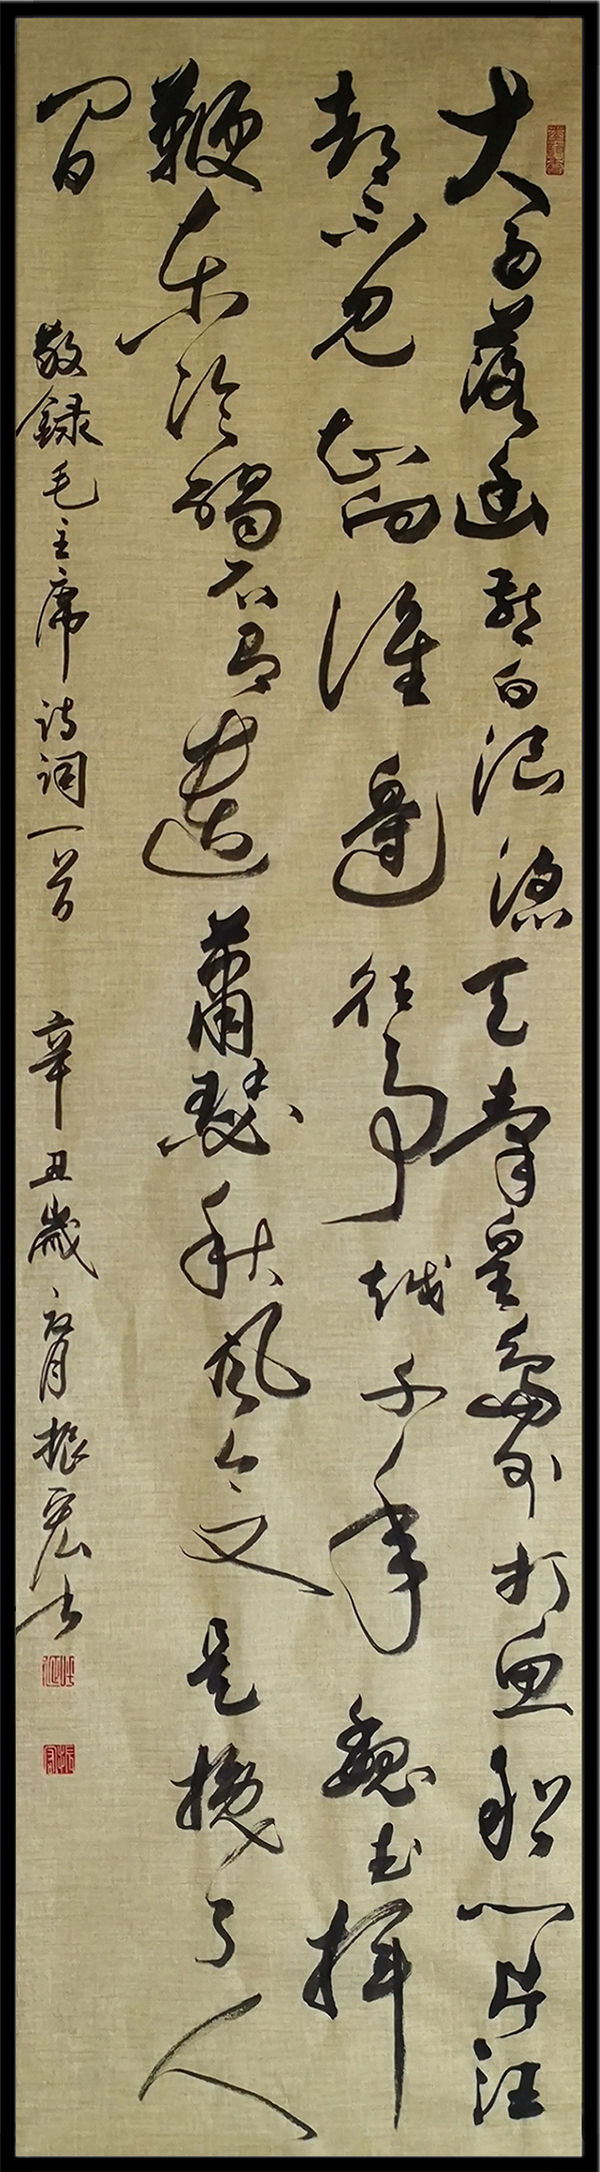 大雨落幽燕白浪滔天秦皇岛外打鱼船一片汪
都不见知向谁边往事越千年魏武挥
鞭东临碣石有遗萧瑟秋风今又是换了人
间 敬録毛主席诗词一首 辛丑歲月振宏书